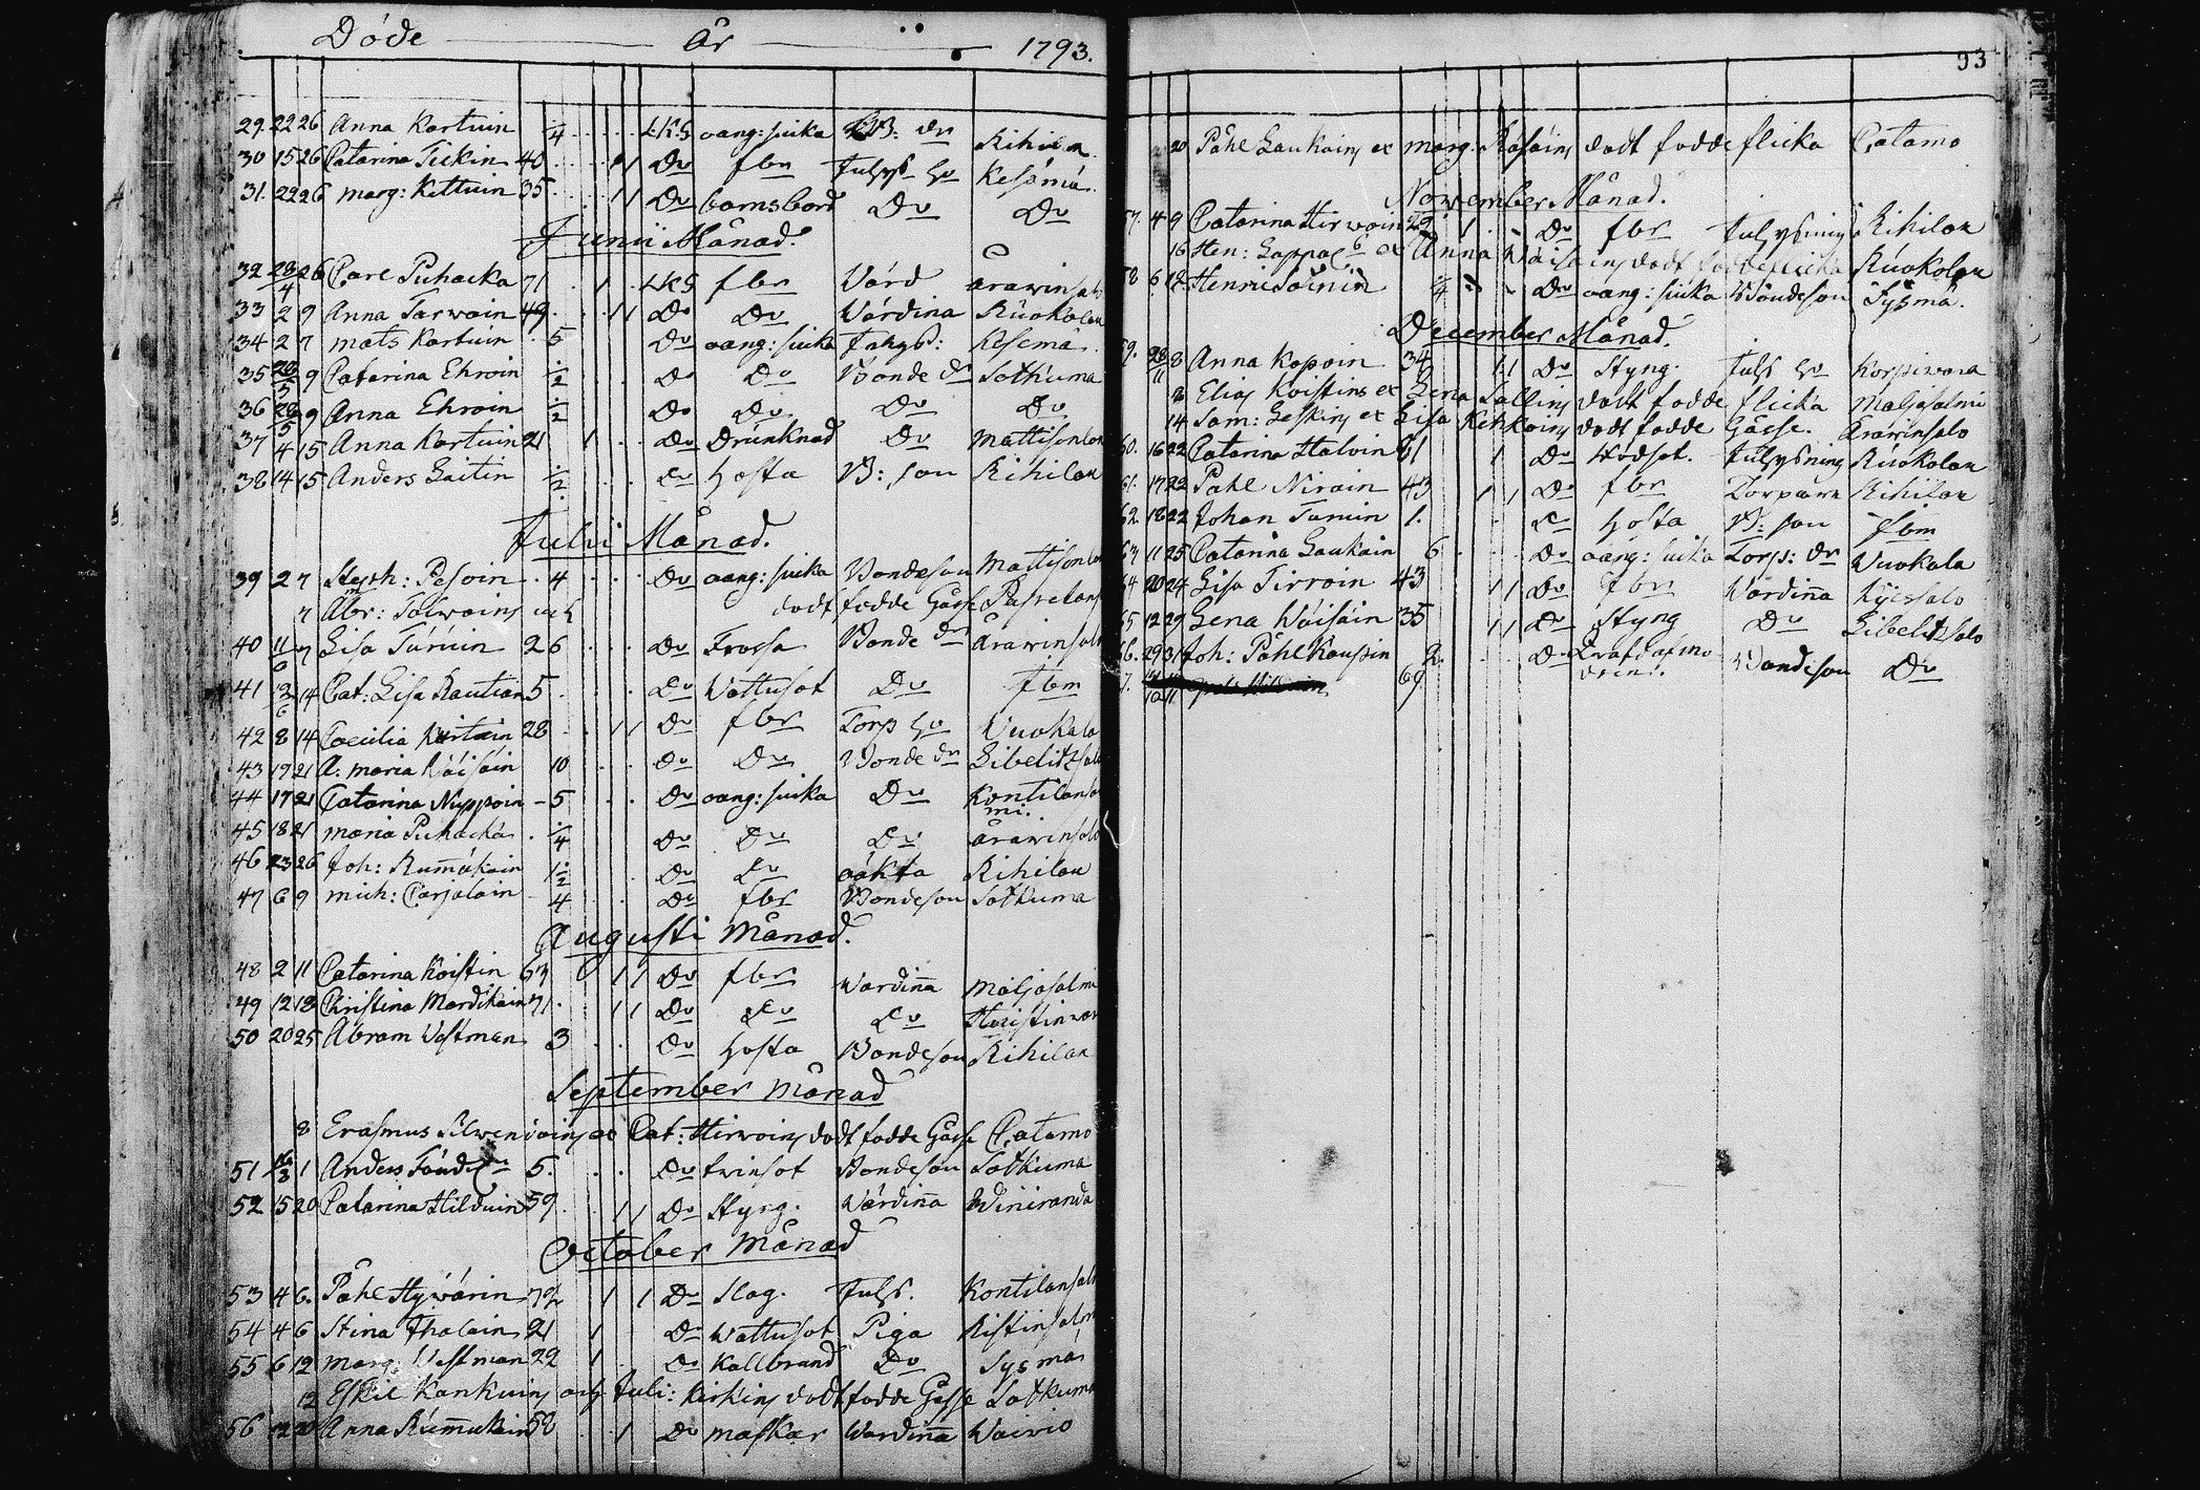 Döde År 1793.
29. 22 26 Anna Kartuin 1/4 LKG oäng: siuka B: dr Rihilax
30 15 26 Catarina Tickin 40 11 Do fbr Juhyß ho Kesämä
31. 22 26 marg: Kettuin 35 11 Do barnsbörd Do Do
Junii Månad.
32 28/4 26 Carl Puhacka 71 1 LKG fbr Värd Arawinsalo
33 2 9 Anna Tarwain 49 11 Do Do Värdina Ruokolax
34 2 7 mats Kartuin 5 Do oäng: siuka Inhyß: Kesemä
35 28/5 9 Catarina Ehroin 1/2 Do Do Bonde dr Sotkuma
36 28/5 9 Anna Ehroin 1/2 Do Do Do Do
37 4 15 Anna Kartuin 21 1 Do Drunknad Do Mattisenlax
38 14 15 Anders Laitin 1/2 Do Hosta B: son Rihilax
Julii Månad.
39 2 7 Steph: Pesoin 4 Do oäng: siuka Bondeson Mattisenlax
7 Abr: Tolwains och dödfödde Gåsse
40 11/6 7 Lisa Turuin 26 Do Frossa Bonde dr Arawinsalo
41 12/6 14 Cat: Lisa Rautiain 5 Do Wattusot Do fbm
42 8 14 Caecilia Kurtuin 28 11 Do fbr Torp ho Wuokala
43 17 21 A: maria Wäisäin 10 Do Do Bonde dr Libelitzsalo
44 17 21 Catarina Nuppoin 5 Do oäng: siuka Do Kontilansalmi.
45 18 21 maria Puhacka 1/4 Do Do Do Arawinsalo
46 23 26 Joh: Rummukain 1 1/2 Do Do oäkta Rihilax
47 6 9 mich: Carjalain 4 Do fbr Bondeson Sotkuma
Augusti Månad.
48 2 11 Catarina Koistin 63 11 Do fbr Wärdinna Maljasalmi
49 12 18 Christina Mardikain 71 11 Do Do Do
50 20 25 Abram Westman 3 Do Hosta Bondeson Rihilax
September Månad
8 Erasmus Silwenoins ex Cat: Hirwoins dödt födde Gåsse Catamo
51 1 Anders 5. Do trinsot Bondeson Sotkuma
52 15 20 Catarina Hilduin 59 11 Do Styng. Wärdinna Winiranda
October Månad
53 4 6. Påhl Hywärin 72 1 1 Do Slag. Juhß. Kontilansalmi
54 4 6 Stina Ihalain 21 1 Do Wattusot Piga Ristinsalmi
55 6 12 marg: Westman 22 1 Do Kallbrand Do Sysmä
12 Eskil Kankuins och Juli: Kirkins dödt födde Gåsse Sotkuma
56 20 Anna Rummukain 52 1 Do maskar Wärdinna Waivio
93
20 Påhl Laukains ex marg. Räsäins dödt födde flicka Catamo
November Månad.
57. 4 9 Catarina Hirwoin 29 1 Do fbr Juhysning Rihilax
16 Hen: Lappal: ex Anna Wäisäins dödt födde flicka Ruokolax
58 6 18 Henric Soinin 1/4 Do oäng: siuka Bondeson Sysmä.
December Månad.
59. 28/11 8 Anna Kopoin 34 11 Do Styng. Juhß ho Korpiwara
8 Elias Koistins ex Lena Sallins dödt födde flicka Maljasalmi
14 Sam: Leskins ex Lisa Kihkoins dödt födde Gåsse. Arawinsalo
60. 16 22 Catarina Haloin 61 1 Do Rödsot. Juhysning Ruokolax
61. 17 22 Påhl Niroin 43 11 Do fbr Torpare Rihilax
62. 18 22 Johan Turuin 1. Do Hosta B: son fbm
63 11 25 Catarina Laukain 6 Do oäng: siuka Torp: dr Wuokala
64 20 24 Lisa Tirroin 43 11 Do fbr Wärdinna Kyessalo
65 12 29 Lena Wäisäin 35 11 Do Styng Do Libelitzsalo
66. 29 31 Joh: Påhl Kauppin 2. Do Bondeson Do
7. 69